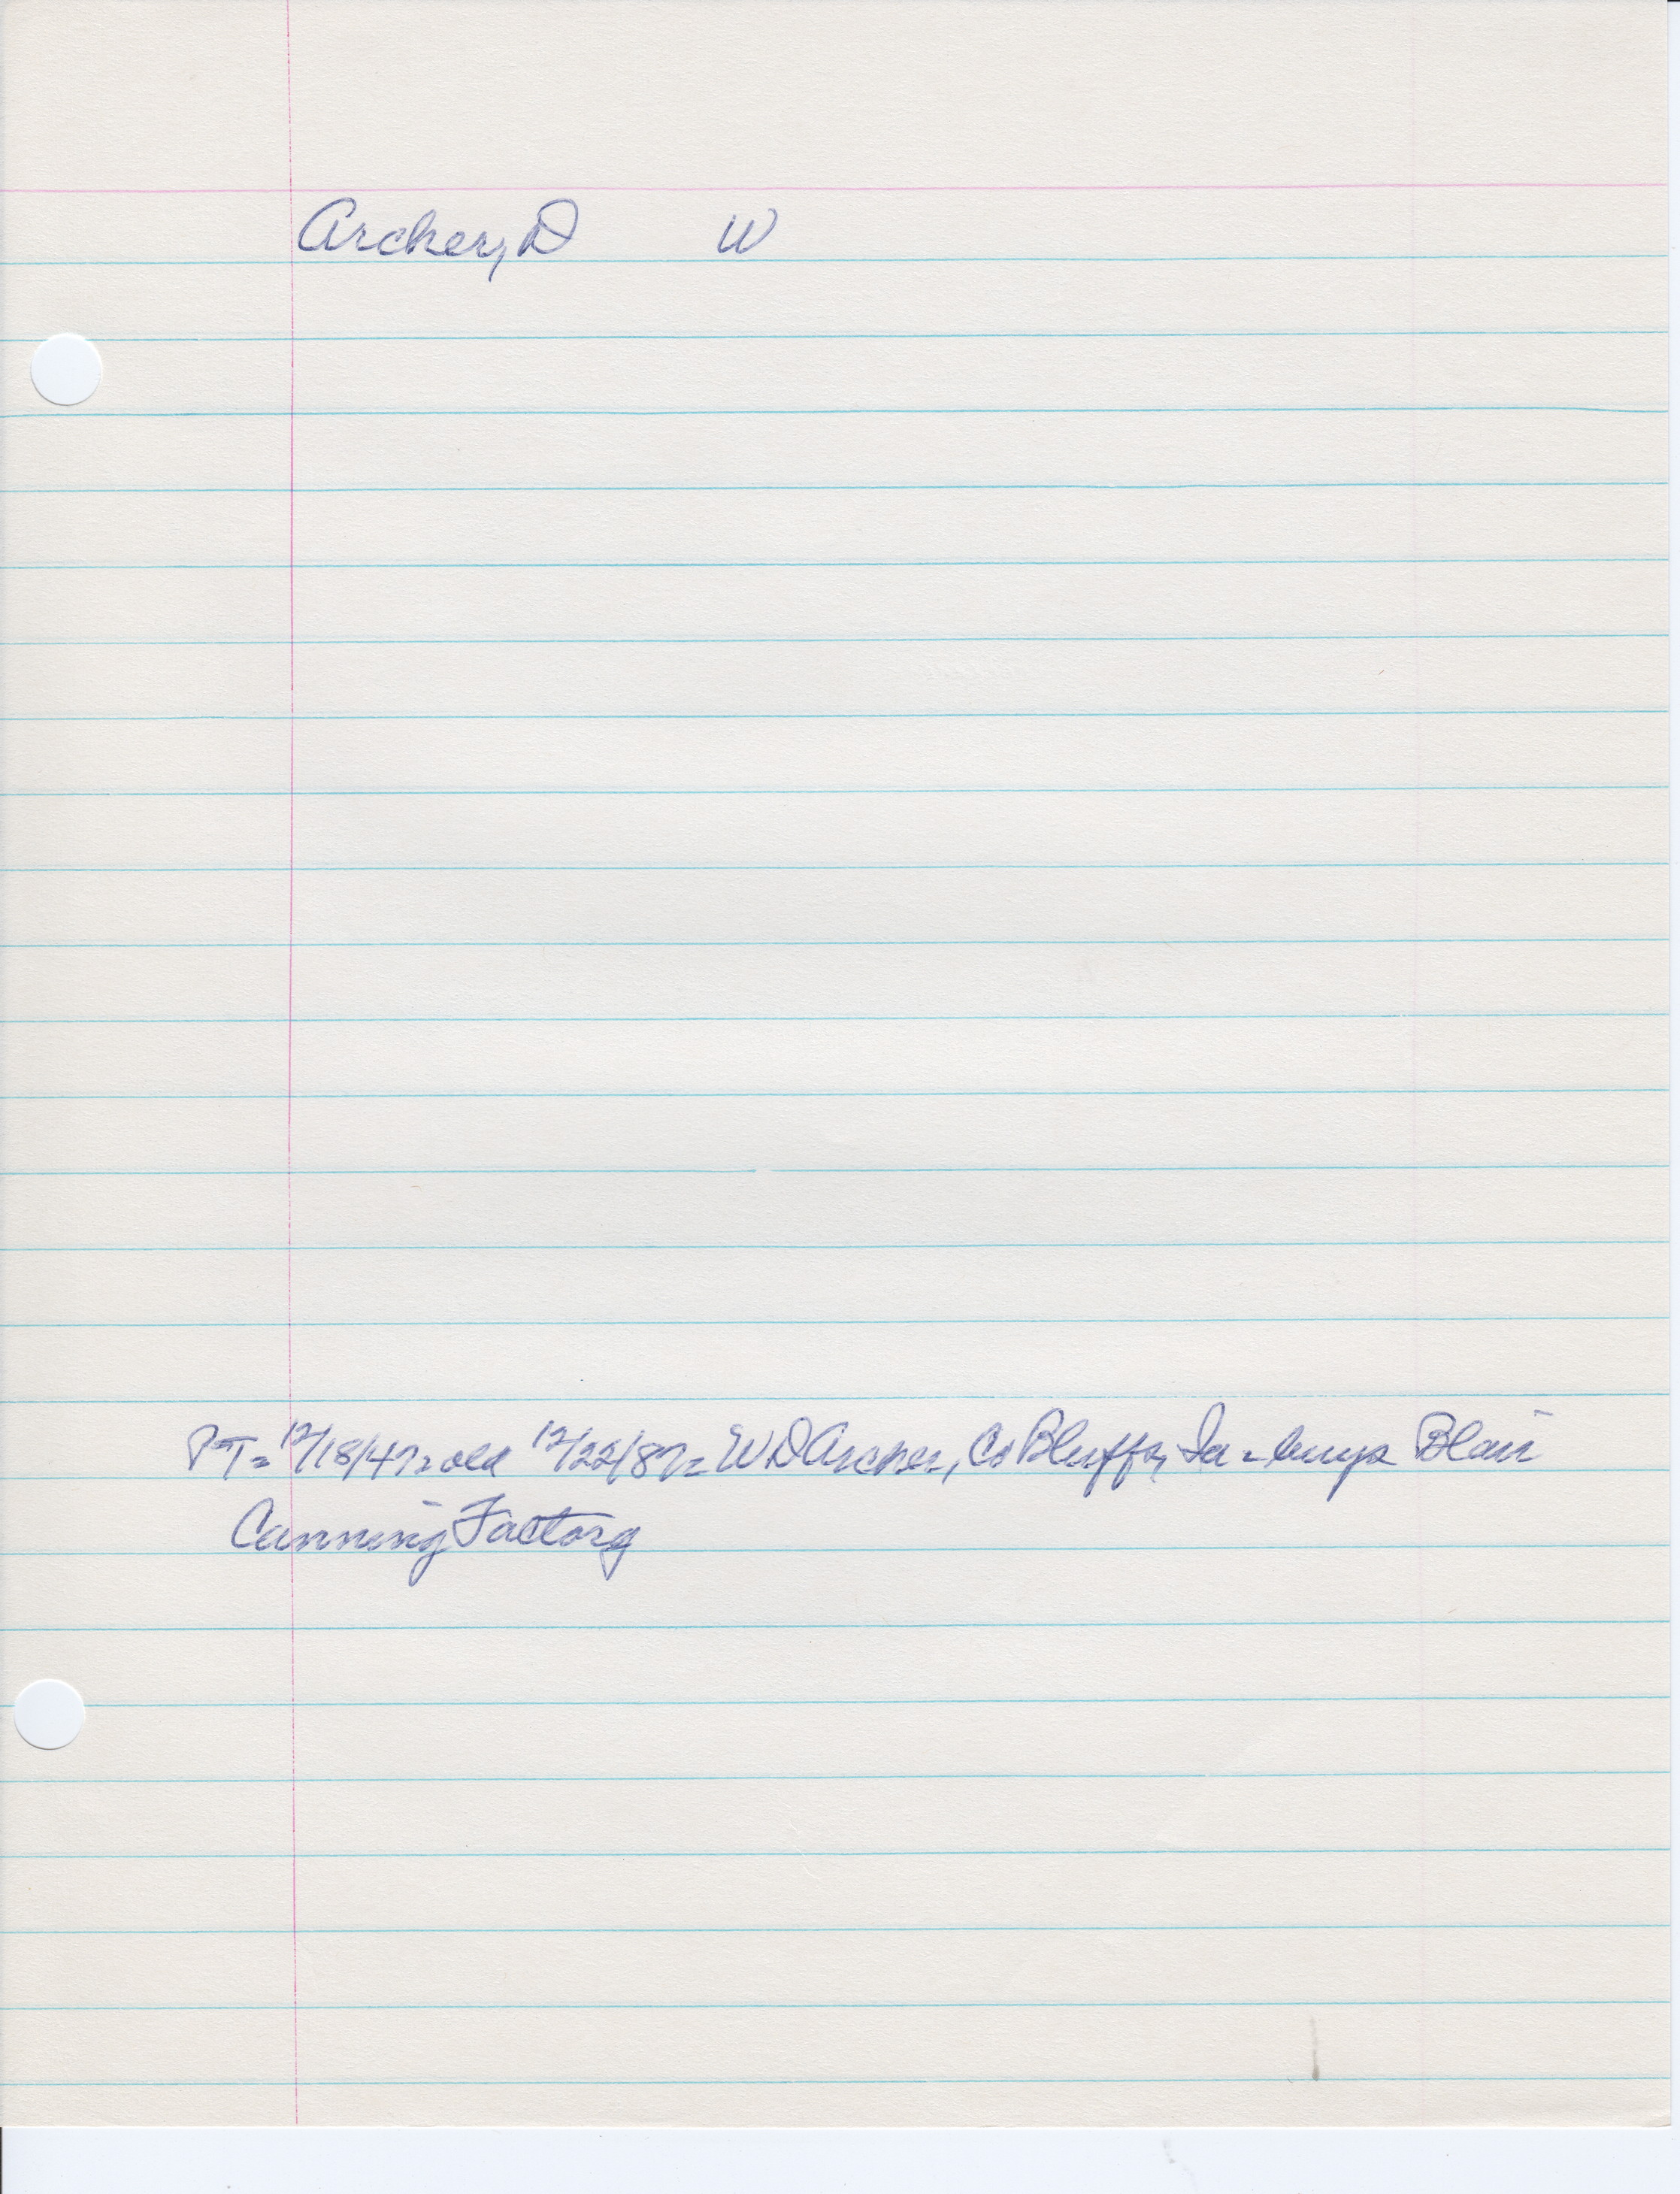 Archer, D W
PT= 12/18/47= old 12/22/87= W D Archer, Co Bluffs, Ia = buys Blair
Canning Factory